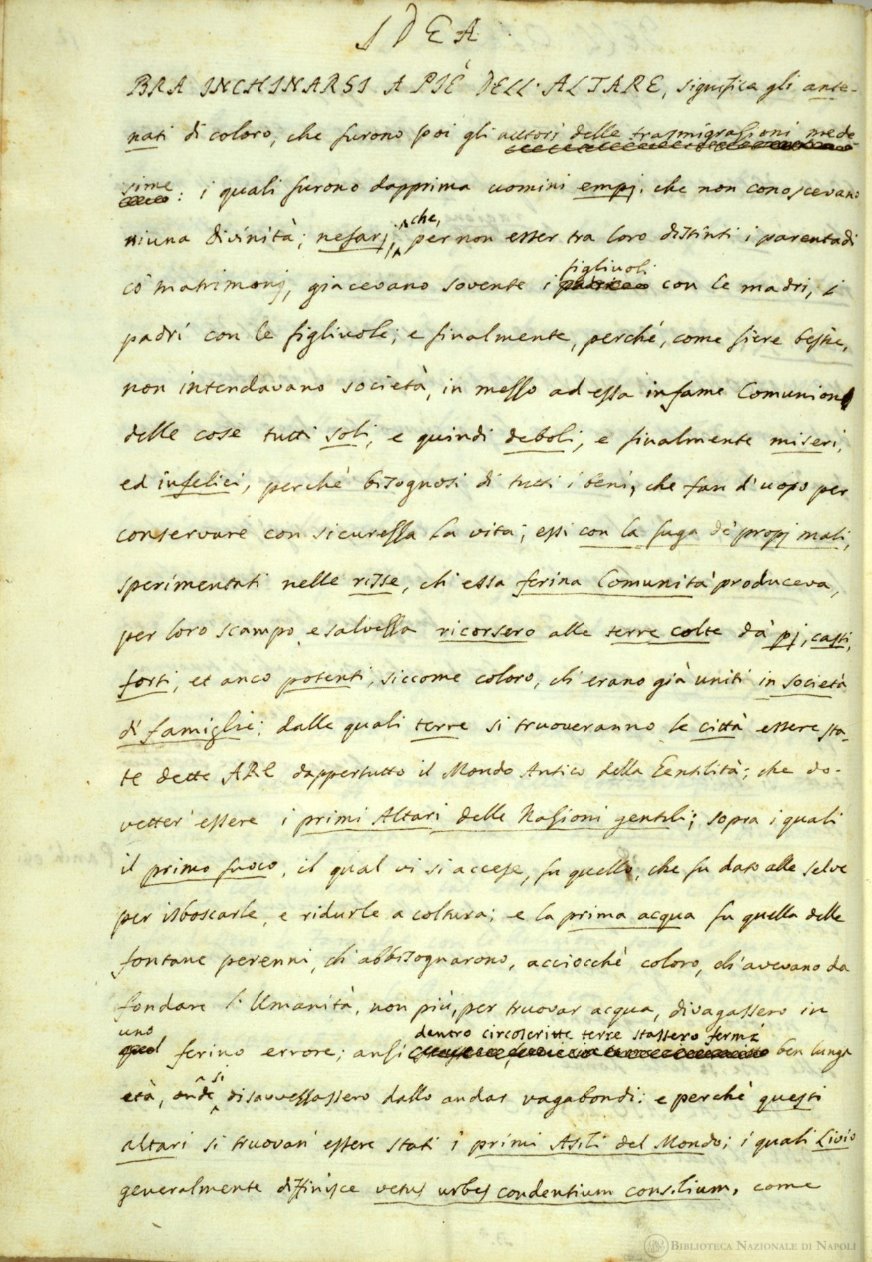 IDEA
BRA INCHINARSI A PIÈ DELL'ALTARE, significa gli ante-
nati di coloro, che furono poi gli autori delle trasmigrazioni mede-
sime : i quali furono dapprima uomini empj, che non conoscevano
niuna divinità; nefarj, che, per non esser tra loro distinti i parentadi
co' matrimonj, giacevano sovente i figliuoli con le madri, i
padri con le figliuole; e finalmente, perchè, come fiere bestie,
non intendavano società, in mezzo ad essa infame Comunione
delle cose tutti soli, e quindi deboli, e finalmente miseri,
ed infelici, perchè bisognosi di tutti i beni, che fan d'uopo per
conservare con sicurezza la vita; essi con la fuga de' propj mali,
sperimentati nelle risse, ch'essa ferina Comunità produceva,
per loro scampo, e salvezza ricorsero alle terre colte da' pj, casti,
forti, et anco potenti, siccome coloro, ch'erano già uniti in società
di famiglie: dalle quali terre si truoveranno le città essere sta-
te dette ARE dappertutto il Mondo Antico della Gentilità; che do-
vetter' essere i primi Altari delle Nazioni gentili; sopra i quali
il primo fuoco, il qual vi si accese, fu quello, che fu dato alle selve
per isboscarle, e ridurle a coltura; e la prima acqua fu quella delle
fontane perenni, ch'abbisognarono, acciocchè coloro, ch'avevano da
fondare l'Umanità, non più, per truovar acqua, divagassero in
uno ferino errore; anzi dentro circoscritte terre stassero fermi ben lunga
età, onde si disavvezzassero dallo andar vagabondi: e perchè questi
altari si truovan' essere stati i primi Asili del Mondo; i quali Livio
generalmente diffinisce vetus urbes condentium consilium, come
BIBLIOTECA NAZIONALE DI NAPOLI